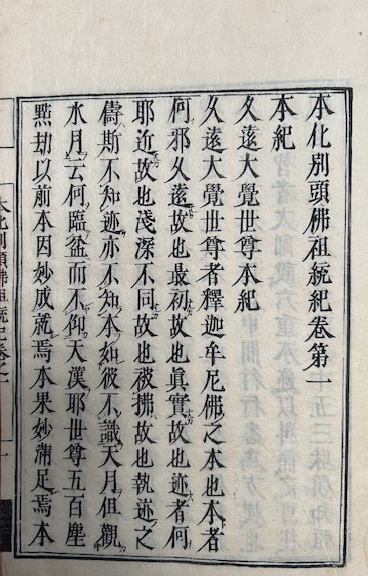 本化別頭佛祖統紀卷第一
本紀
久遠大覺世尊本紀
久遠大覺世尊者釋迦牟尼佛之本也本者
何邪久遠故也最初故也眞實故也迹者何
耶近故也淺深不同故也被拂故也執迹之
儔斯不知迹亦不知本如彼不識天月但觀
水月云何臨盆而不仰天漢耶世尊五百塵
㸃劫以前本因妙成就焉本果妙滿足焉本
本化別頭佛祖統紀卷之一